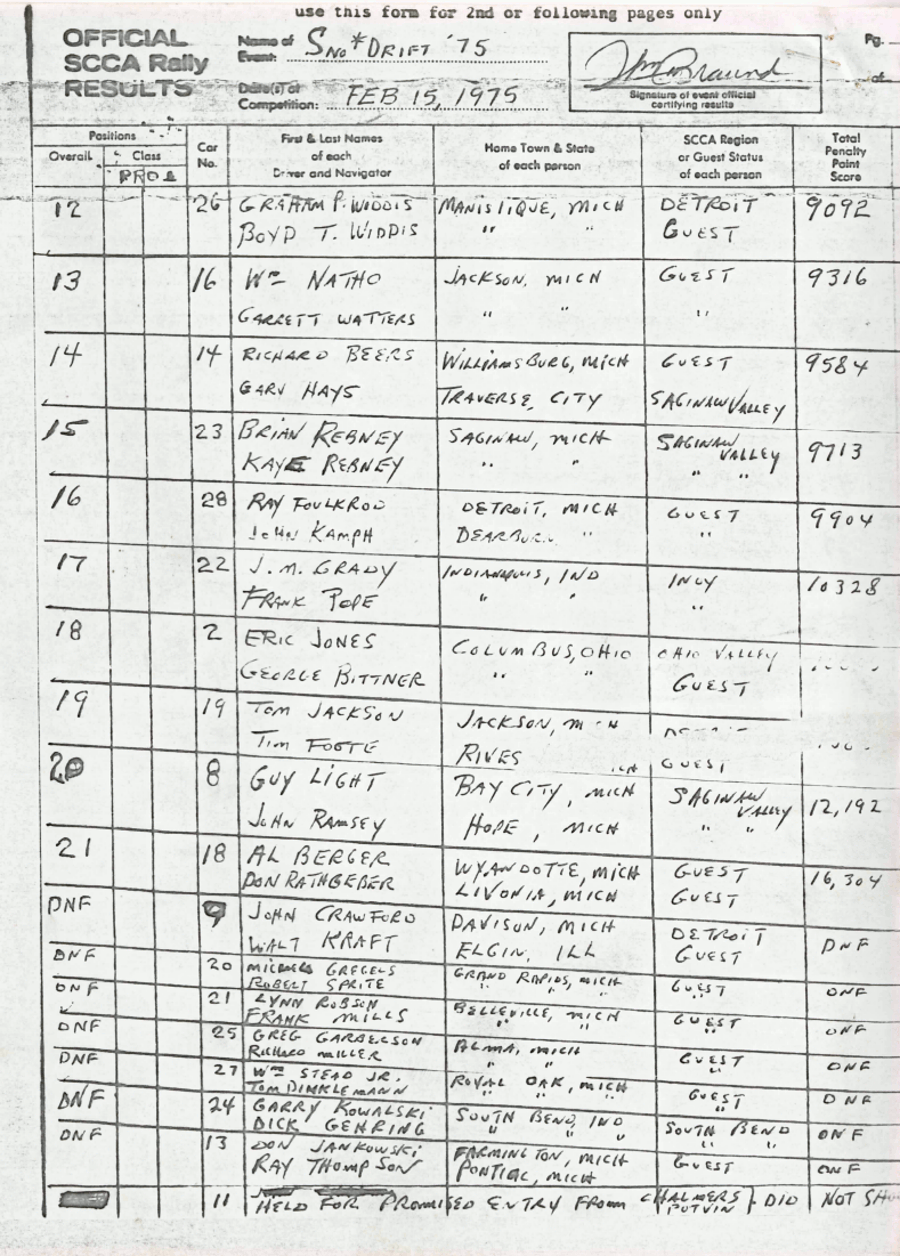 use this form for 2nd or following pages only
OFFICIAL
SCCA Rally
RESULTS
Name of
Event: SNO*DRIFT '75
Date(s) of
Competition: FEB 15, 1975
Signature of event official
certifying results
Pg.
of
Positions
Overall
Class
PRO 1
Car
No.
First & Last Names
of each
Driver and Navigator
Home Town & State
of each person
SCCA Region
or Guest Status
of each person
Total
Penalty
Point
Score
12 26 GRAHAM P. WIDDIS MANISTIQUE, MICH DETROIT 9092
BOYD T. WIDDIS " " GUEST
13 16 Wm NATHO JACKSON, MICH GUEST 9316
GARRETT WATTERS " " "
14 14 RICHARD BEERS WILLIAMSBURG, MICH GUEST 9584
GARY HAYS TRAVERSE, CITY SAGINAW VALLEY
15 23 BRIAN REBNEY SAGINAW, MICH SAGINAW VALLEY 9713
KAYE REBNEY " " " "
16 28 RAY FOULKROD DETROIT, MICH GUEST 9904
JOHN KAMPH DEARBORN " "
17 22 J.M. GRADY INDIANAPOLIS, IND INDY 10328
FRANK POPE " " "
18 2 ERIC JONES COLUMBUS, OHIO OHIO VALLEY
GEORGE BITTNER " " GUEST
19 19 TOM JACKSON JACKSON, MICH DETROIT
TIM FOOTE RIVES GUEST
20 8 GUY LIGHT BAY CITY, MICH SAGINAW VALLEY 12,192
JOHN RAMSEY HOPE, MICH " "
21 18 AL BERGER WYANDOTTE, MICH GUEST 16,304
DON RATHGEBER LIVONIA, MICH GUEST
DNF 9 JOHN CRAWFORD DAVISON, MICH DETROIT DNF
WALT KRAFT ELGIN, ILL GUEST
DNF 20 GREGELS GRAND RAPIDS, MICH GUEST DNF
ROBERT SPRITE " " "
DNF 21 LYNN ROBSON BELLEVILLE, MICH GUEST DNF
FRANK MILLS " " "
DNF 25 GREG GARBELSON ALMA, MICH GUEST DNF
RICHARD MILLER " " "
DNF 27 Wm STEAD JR. ROYAL OAK, MICH GUEST DNF
TOM DIMKLEMANN " " " "
DNF 24 GARRY KOWALSKI SOUTH BEND, IND SOUTH BEND DNF
DICK GEHRING " " " " "
DNF 13 DON JANKOWSKI FARMINGTON, MICH GUEST DNF
RAY THOMPSON PONTIAC, MICH
11 HELD FOR PROMISED ENTRY FROM CHALMERS } DID NOT SH
POTVIN